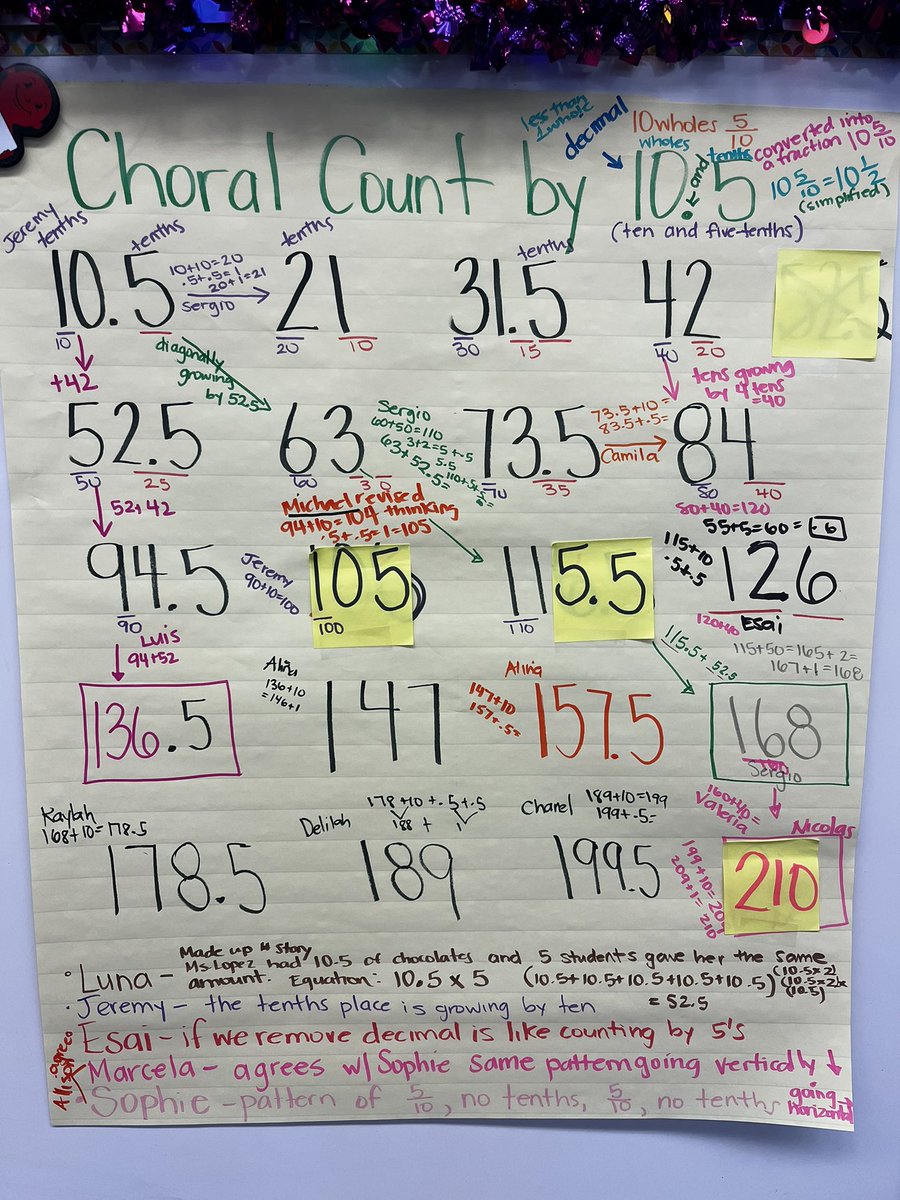 less than
1 whole
decimal
10 wholes 5/10
wholes
and
tenths
converted into
a fraction 10 5/10
10 5/10 = 10 1/2
(simplified)
Choral Count by 10.5
(ten and five-tenths)
Jeremy
tenths
tenths
tenths
tenths
10.5
10+10=20
.5+.5=1
20+1=21
Sergio
21
31.5
42
10
20
10
30
15
40
20
+42
diagonally
growing
by 52.5
tens growng
by 4 tens
=40
52.5
63
Sergio
60+50=110
3+2=5+.5
5.5
63+52.5=
110+5+.5
73.5
73.5+10=
83.5+.5=
Camila
84
50
25
60
30
70
35
80
40
52+42
Michael revised
thinking
94+10=104
.5+.5=1=105
80+40=120
55+5=60=.6
94.5
Jeremy
90+10=100
105
115.5
115+10
.5+.5
126
90
100
110
120+40
Esai
Luis
94+52
115.5+52.5
115+50=165+2=
167+1=168
136.5
Alina
136+10
=146+1
147
Alina
147+10
157+.5=
157.5
168
Sergio
Kaylah
168+10=178.5
178.5
Delilah
178+10+.5+.5
188+1
189
Charel
189+10=199
199+.5=
199.5
160+40=
Valeria
Nicolas
199+10=209
209+1=210
210
Made up # story
·Luna- Ms. Lopez had 10.5 of chocolates and 5 students gave her the same
amount. Equation: 10.5 x 5 (10.5+10.5+10.5+10.5+10.5)
(10.5x2)
(10.5x2)x
(10.5)
= 52.5
·Jeremy- the tenths place is growing by ten
Esai- if we remove decimal is like counting by 5's
Allison agreed
Marcela- agrees w/ Sophie same pattern going vertically ↓
·Sophie-pattern of 5/10, no tenths, 5/10, no tenths going → horizontal